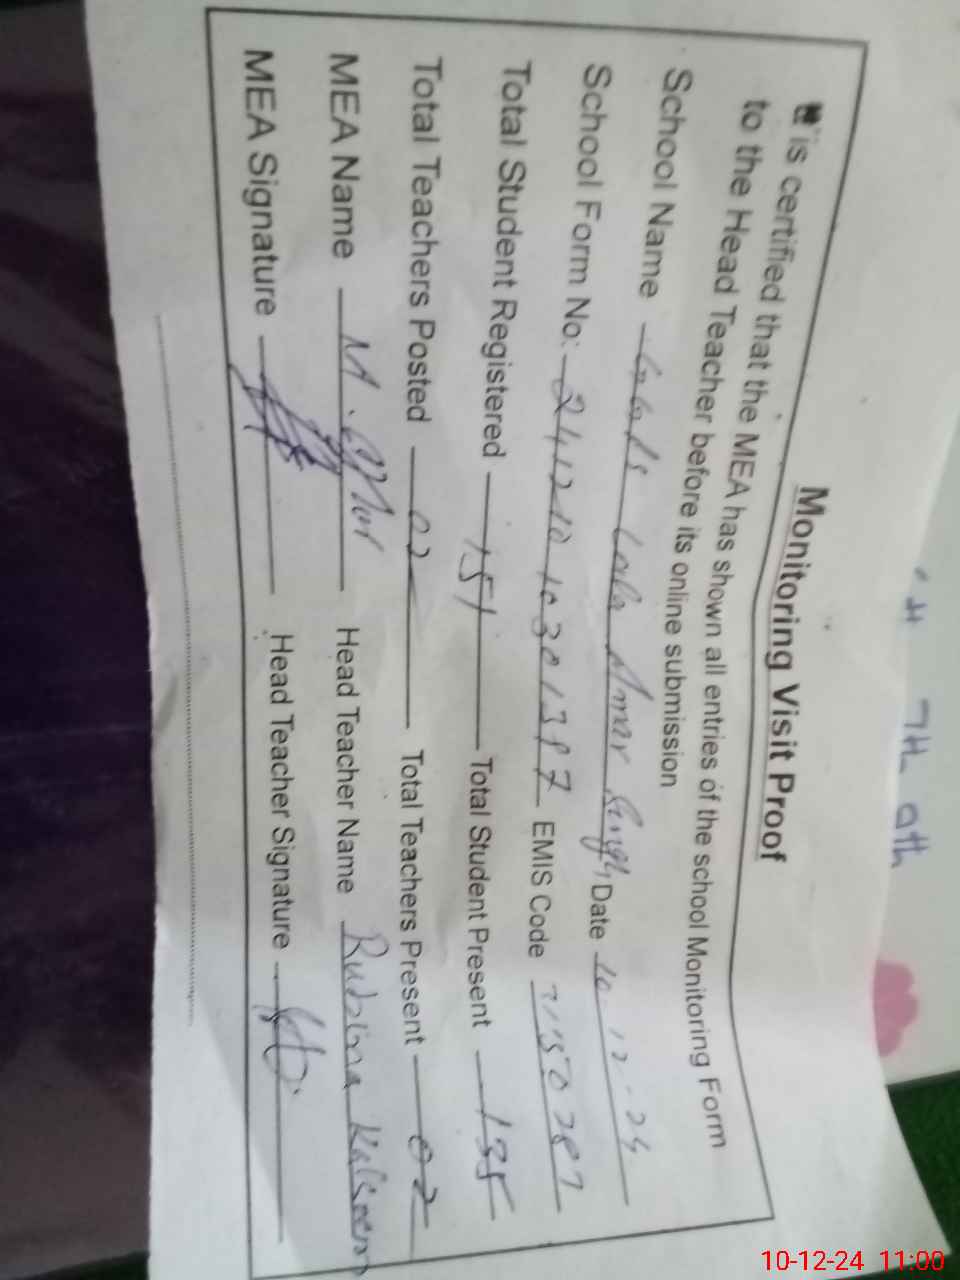 Monitoring Visit Proof
is certified that the MEA has shown all entries of the school Monitoring Form
to the Head Teacher before its online submission
School Name Amar Singh Date 10-12-24
School Form No: EMIS Code
Total Student Registered 151 Total Student Present 135
Total Teachers Posted 02 Total Teachers Present 02
MEA Name M. Head Teacher Name Rubina Kalsoom
MEA Signature Head Teacher Signature
10-12-24 11:00